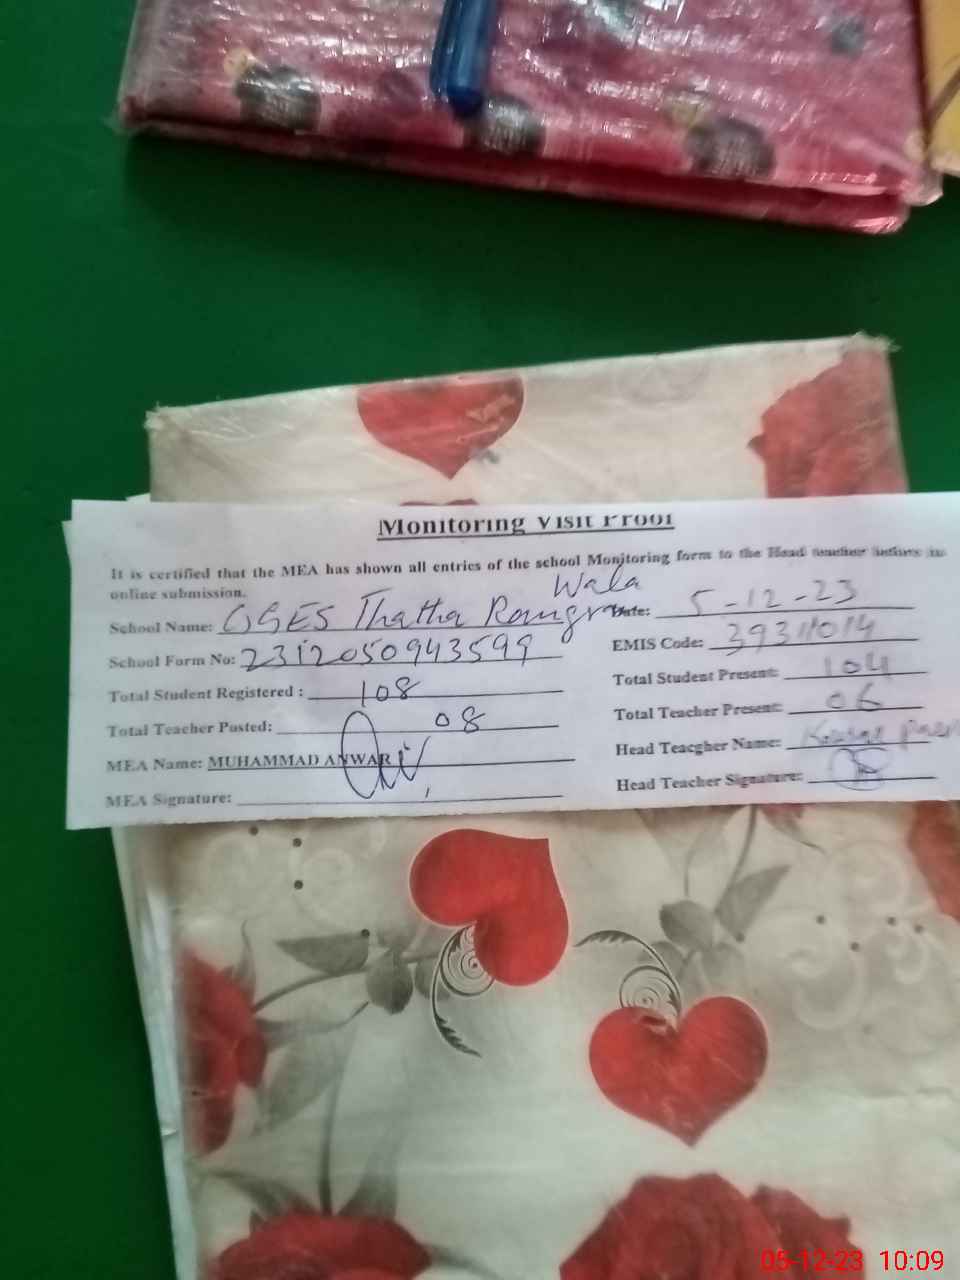 Monitoring Visit Proof
It is certified that the MEA has shown all entries of the school Monitoring form to the Head teacher before its
online submission.
School Name: GGES Thatha Rangran Wala Date: 5-12-23
School Form No: 2312050943599 EMIS Code: 39311014
Total Student Registered : 108 Total Student Present: 104
Total Teacher Posted: 08 Total Teacher Present: 06
MEA Name: MUHAMMAD ANWAR Head Teacgher Name: Kausar
MEA Signature: Head Teacher Signature:
05-12-23 10:09